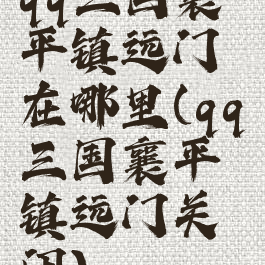 qq三国襄
平镇远门
在哪里(qq
三国襄平
镇远门关
闭)